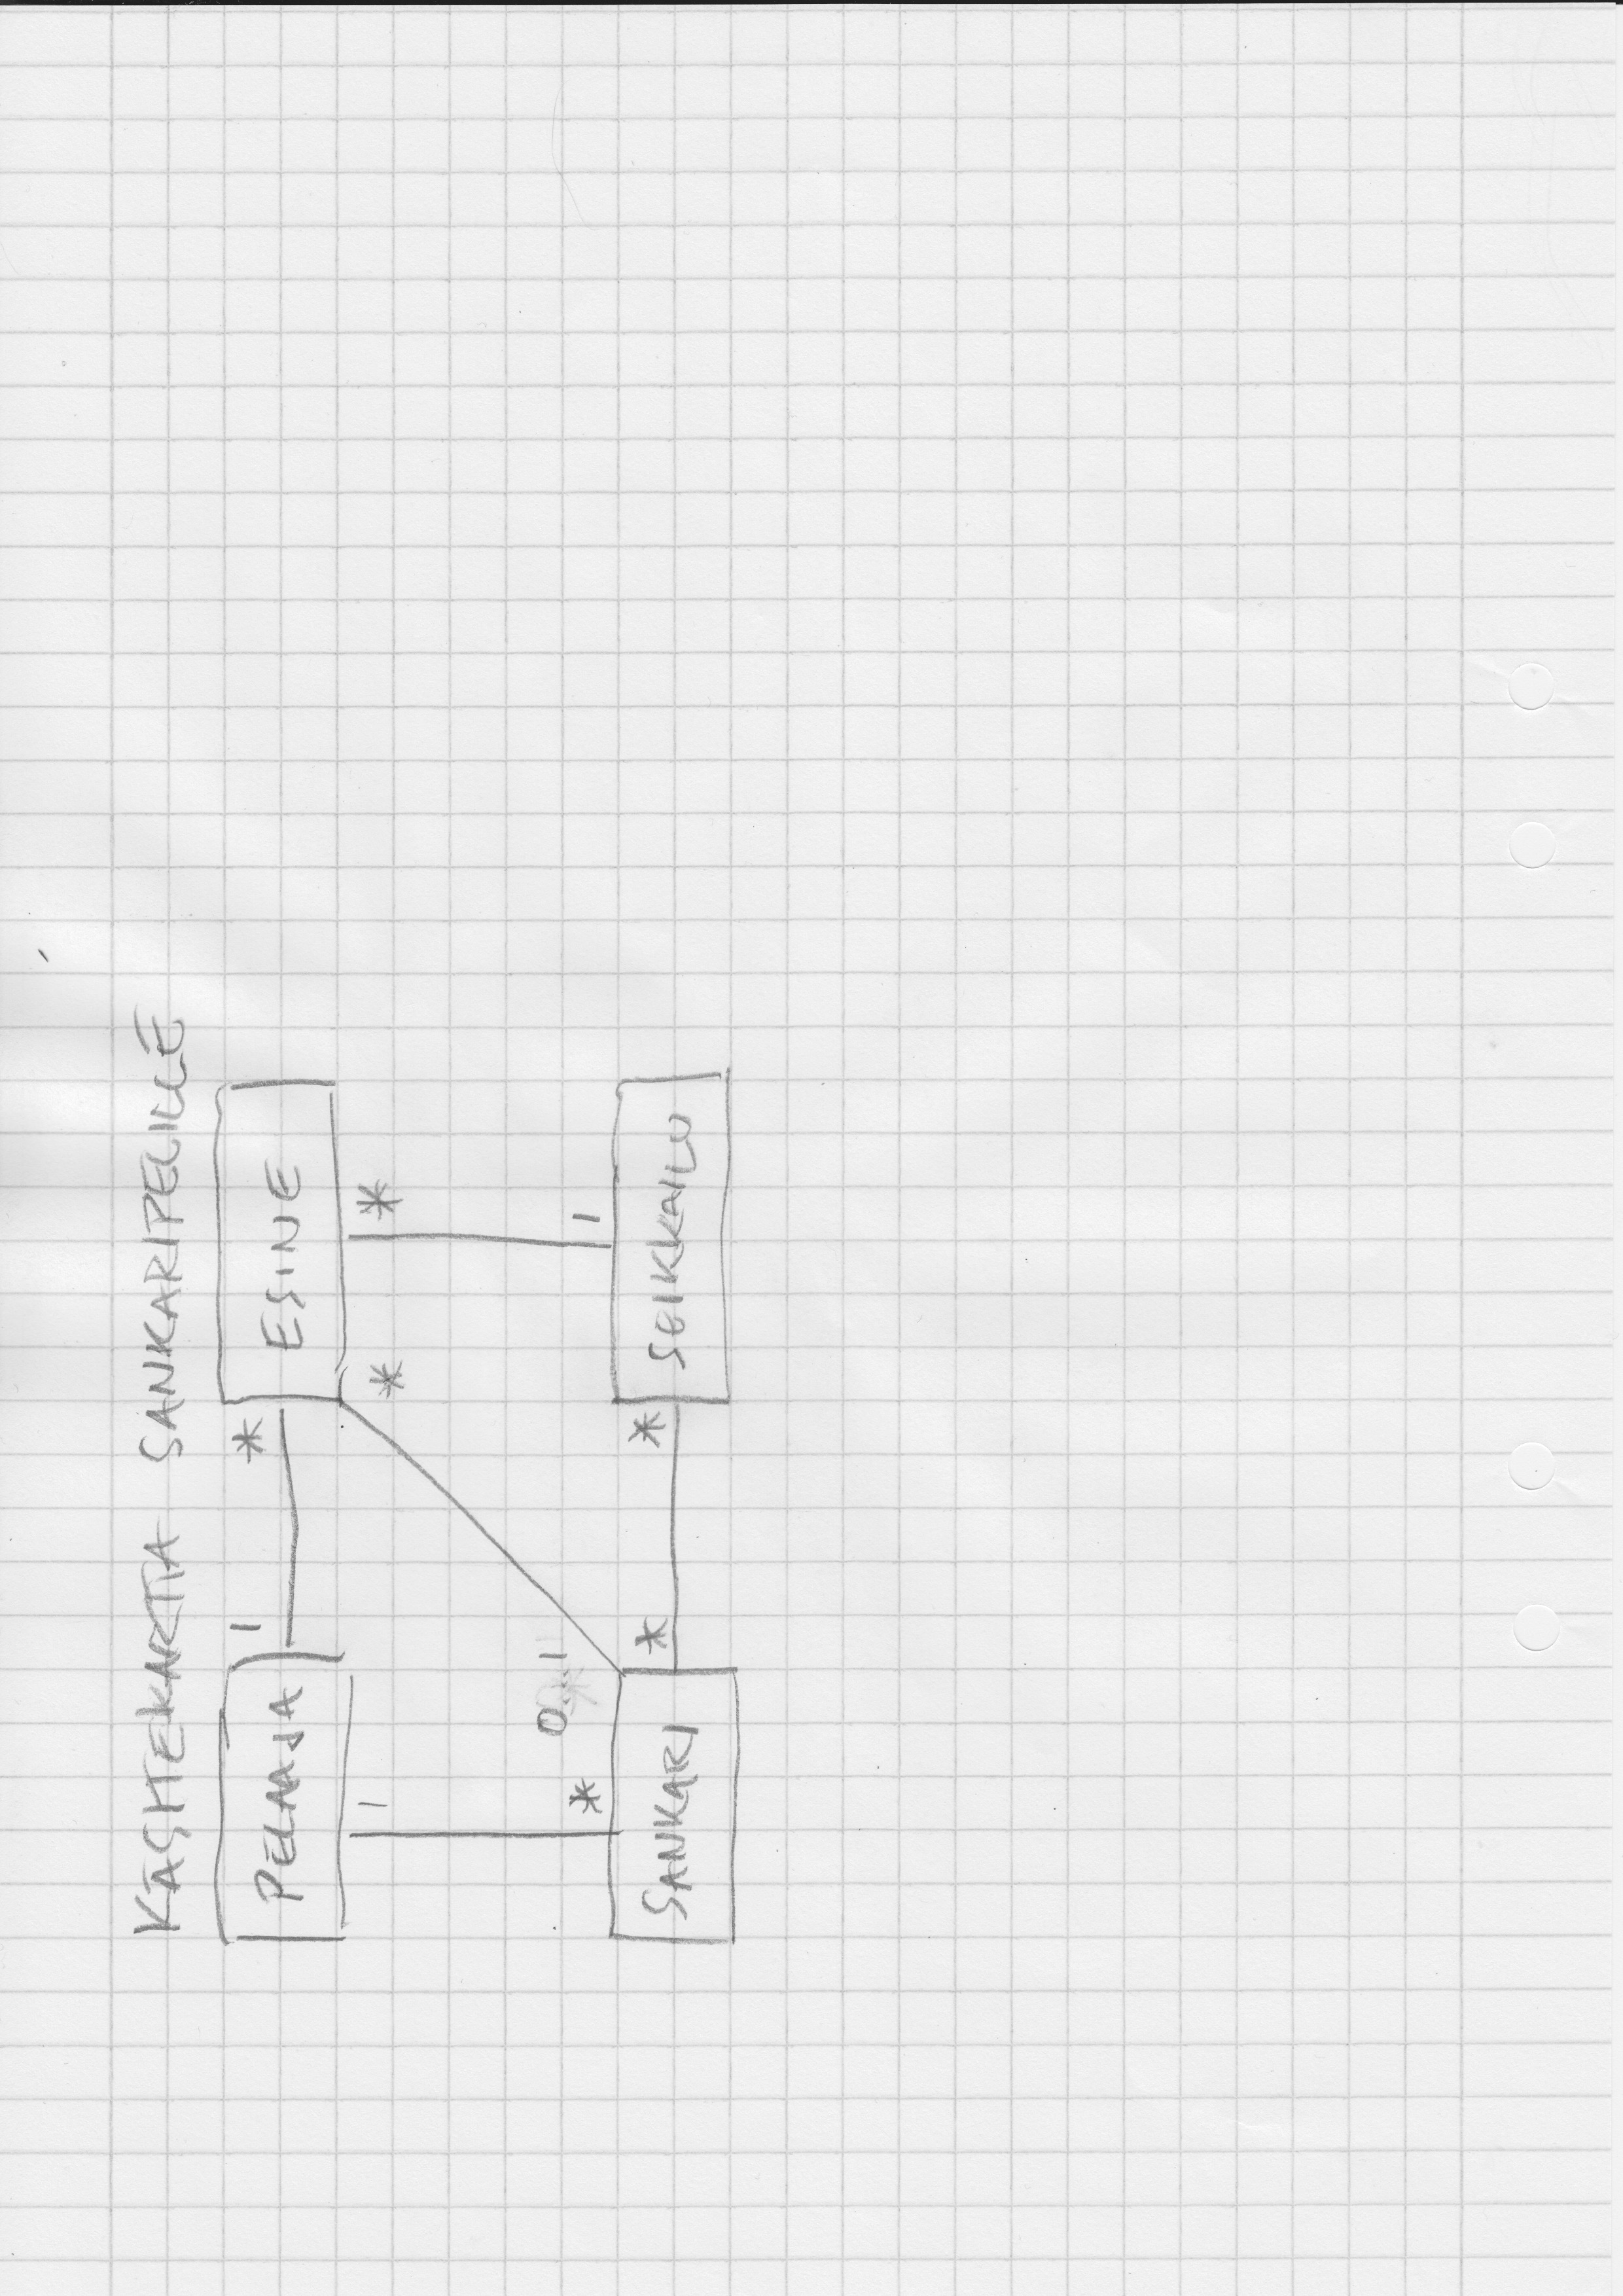 KÄSITEKARTTA SANKARIPELILLE
PELAAJA 1 * ESINE
1 * *
0...1
* 1
SANKARI * * SEIKKAILU